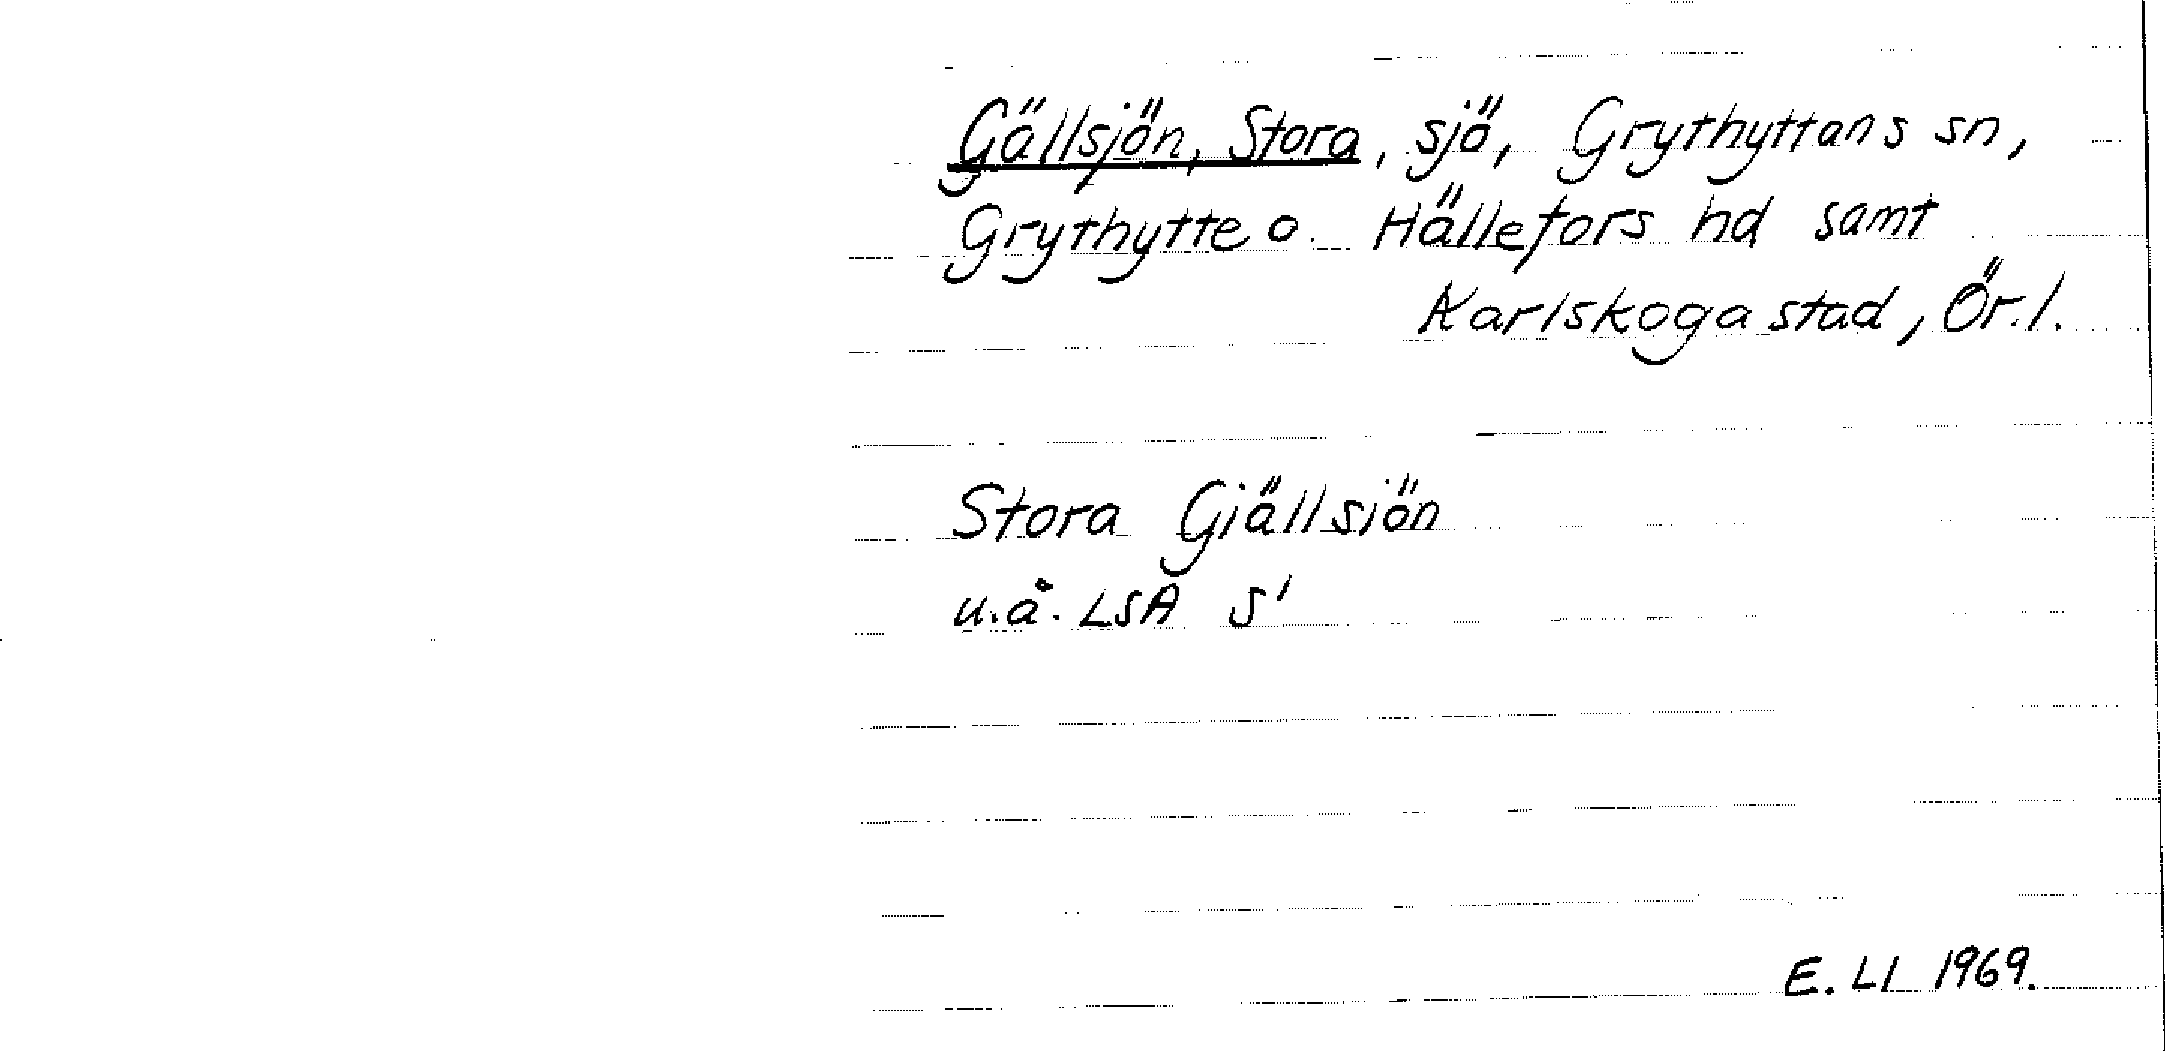 Gällsjön, Stora, sjö, Grythyttans sn,
Grythytte o. Hällefors hd samt
Karlskoga stad, Ör.l.
Stora Gjällsjön
u.å. LSA S'
E. Ll 1969.